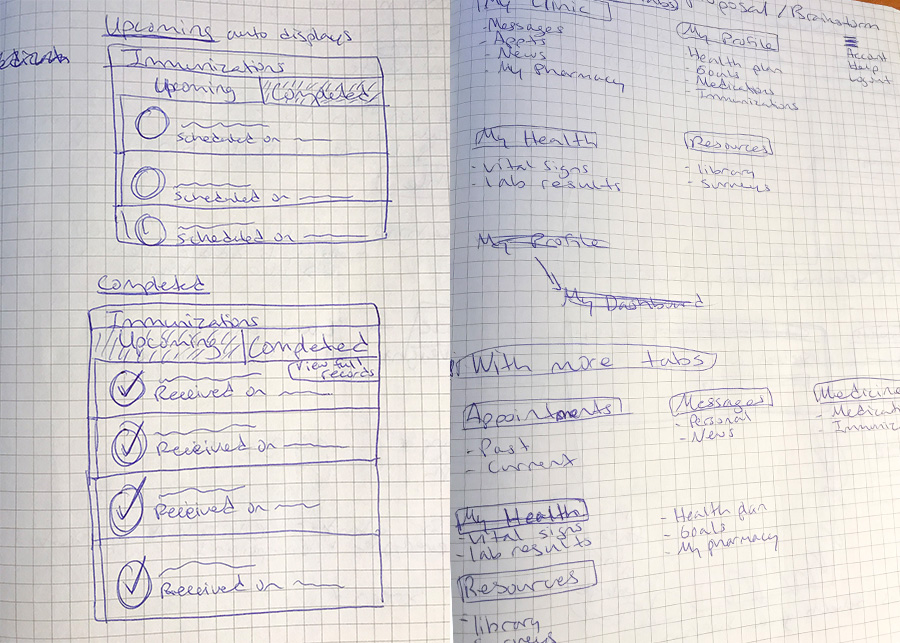 Upcoming auto displays
Immunizations
Upcoming Completed
Scheduled on
Scheduled on
Scheduled on
Completed
Immunizations
Upcoming Completed
View full
records
Received on
Received on
Received on
Received on
My Clinic
- Messages
- Appts
- News
- My pharmacy
tabs) Proposal / Brainstorm
My Profile
- Health plan
- Goals
- Medications
- Immunizations
Account
Help
Logout
My Health
- vital signs
- lab results
Resources
- library
- surveys
My Profile
My Dashboard
With more tabs
Appointments
- Past
- Current
Messages
- Personal
- News
Medicine
- Medicat
Immuniz
My Health
- vital signs
- lab results
- Health plan
- Goals
- My pharmacy
Resources
- library